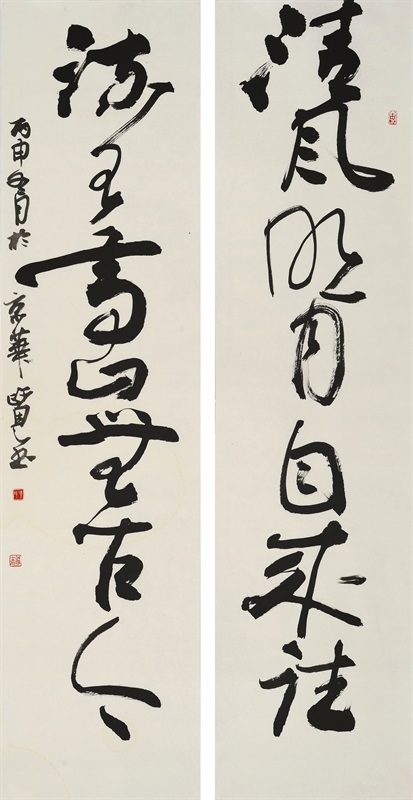 清風明月自來往
流水高山無古今
丙申 月於京華